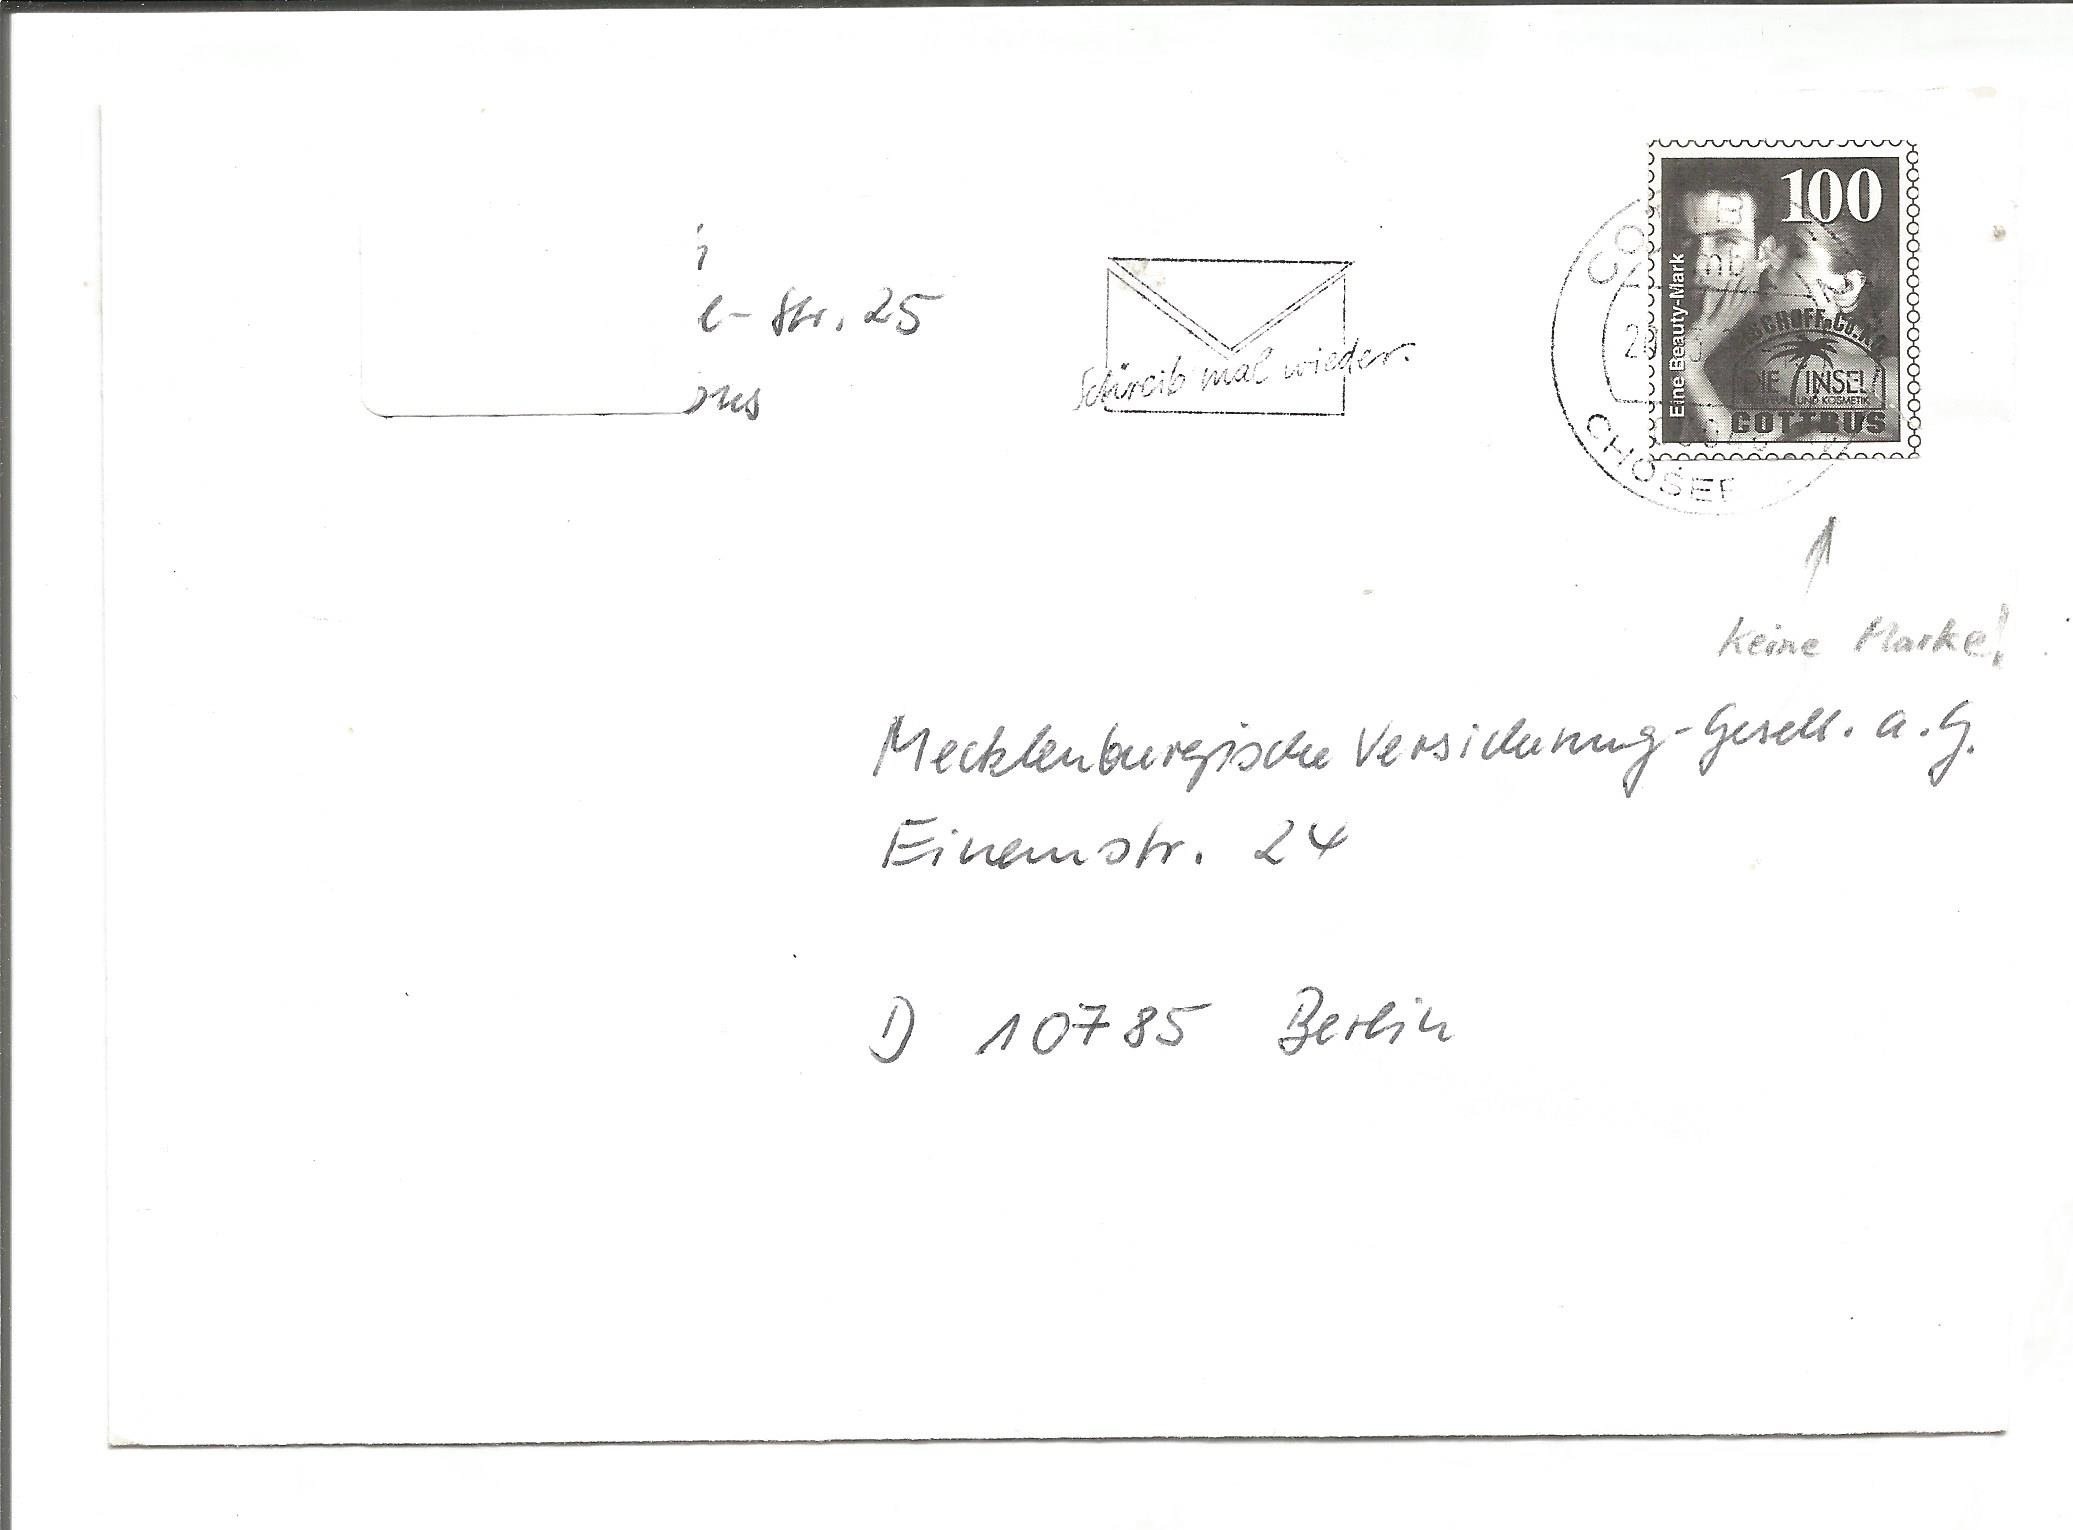 e-Str. 25
Schreib mal wieder.
100
Eine Beauty-Mark
DIE INSEL
UND KOSMETIK
COTTBUS
keine Marke!
Mecklenburgische Versicherung-Gesell. a. G.
Einemstr. 24
D 10785 Berlin